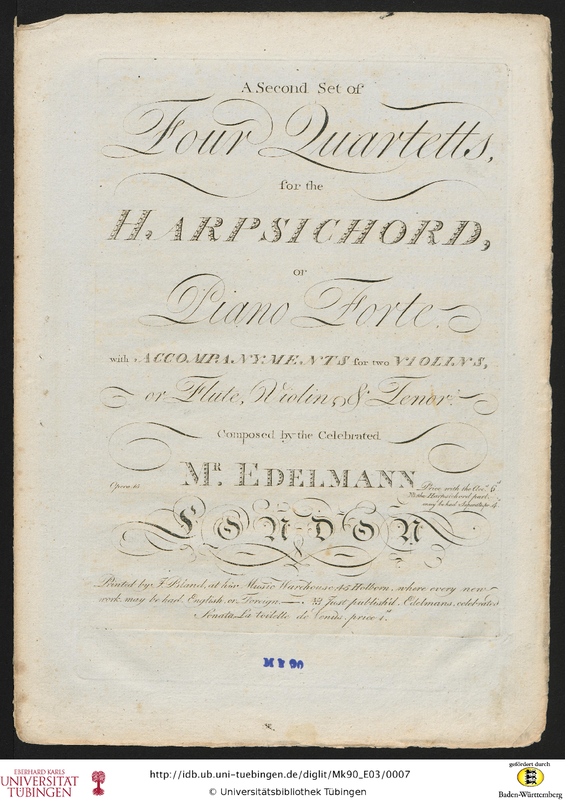 A Second Set of
Four Quartetts,
for the
HARPSICHORD,
or
Piano Forte.
with ACCOMPANYMENTS for two VIOLINS,
or Flute, Violin, & Tenor.
Composed by the Celebrated.
MR. EDELMANN
Opera
Price with the Acc.
NB the Harpsichord part
may be had Separate pr. 4
LONDON
Printed by F. Bland, at his Music Warehouse 45 Holborn, where every new
work, may be had, English, or Foreign. NB Just publish'd, Edelmans, celebrated
Sonata La toilette de Venus, price 1s
Mk 90
EBERHARD KARLS
UNIVERSITÄT
TÜBINGEN
http://idb.ub.uni-tuebingen.de/diglit/Mk90_E03/0007
© Universitätsbibliothek Tübingen
gefördert durch
Baden-Württemberg